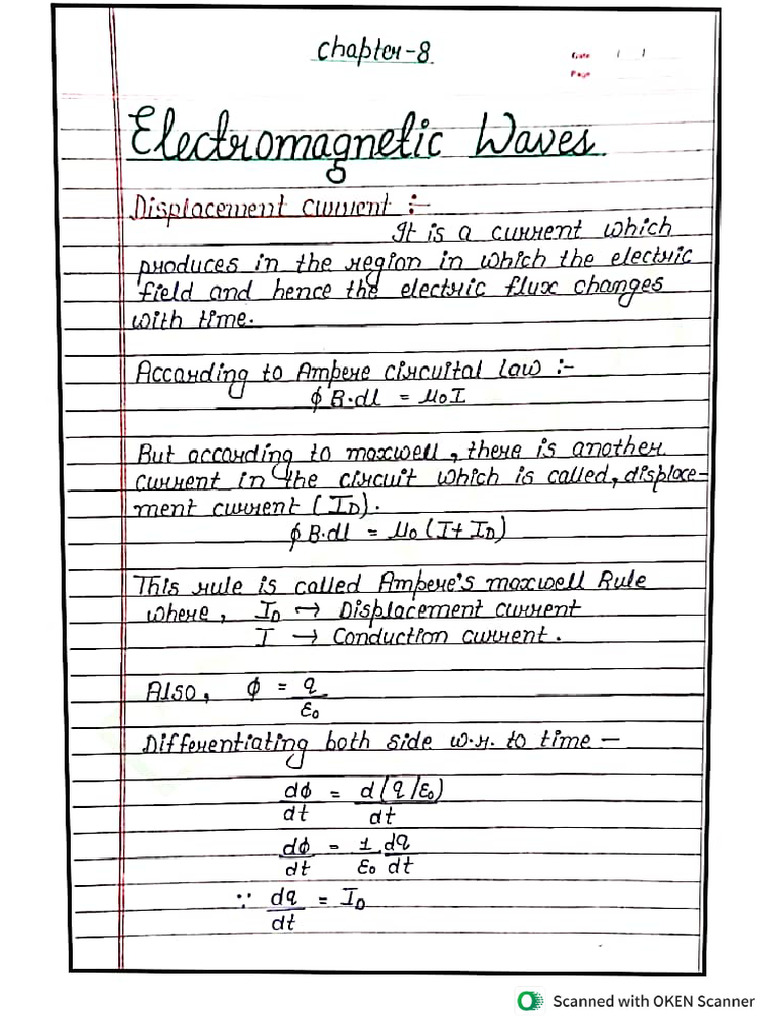 Chapter-8
Date / /
Page
Electromagnetic Waves
Displacement current :-
It is a current which
produces in the region in which the electric
field and hence the electric flux changes
with time.
According to Ampere circuital law :-
∮ B.dl = μ0 I
But according to maxwell, there is another
current in the circuit which is called, displace-
ment current (I_D).
∮ B.dl = μ0 (I + I_D)
This rule is called Ampere's maxwell Rule
where, I_D → Displacement current
I → Conduction current.
Also, ϕ = q/ε0
Differentiating both side w.r. to time –
dϕ/dt = d(q/ε0)/dt
dϕ/dt = 1/ε0 dq/dt
∵ dq/dt = I_D
Scanned with OKEN Scanner